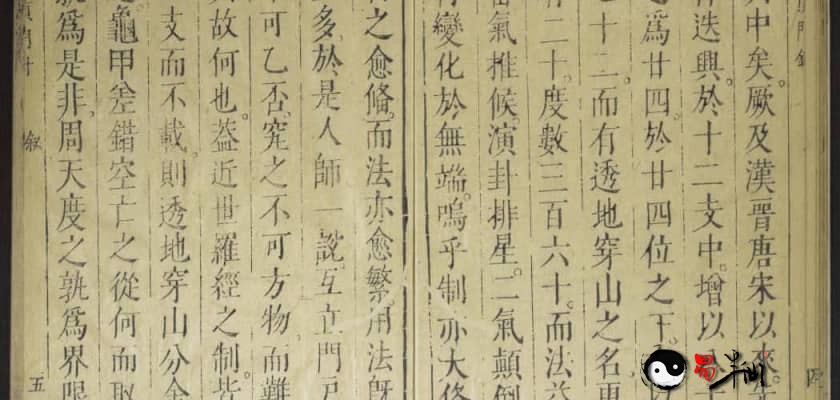 中矣。厥及漢晉唐宋以來。
迭興。於十二支中。增以八
爲廿四。於廿四位之下。
十二。而有透地穿山之名。更
有二十。度數三百六十。而法益
氣推候。演卦排星。二氣顛倒
變化於無端。嗚乎制亦大俻
之愈俻。而法亦愈繁。用法旣
多。於是人師一說。互立門戶
可乙否。究之不可方物。而難
故何也。葢近世羅經之制。皆
支而不載。則透地穿山分金
龜甲差錯空亡之從何而取
就爲是非。周天度之孰爲界限
門針 敘 五
四
易